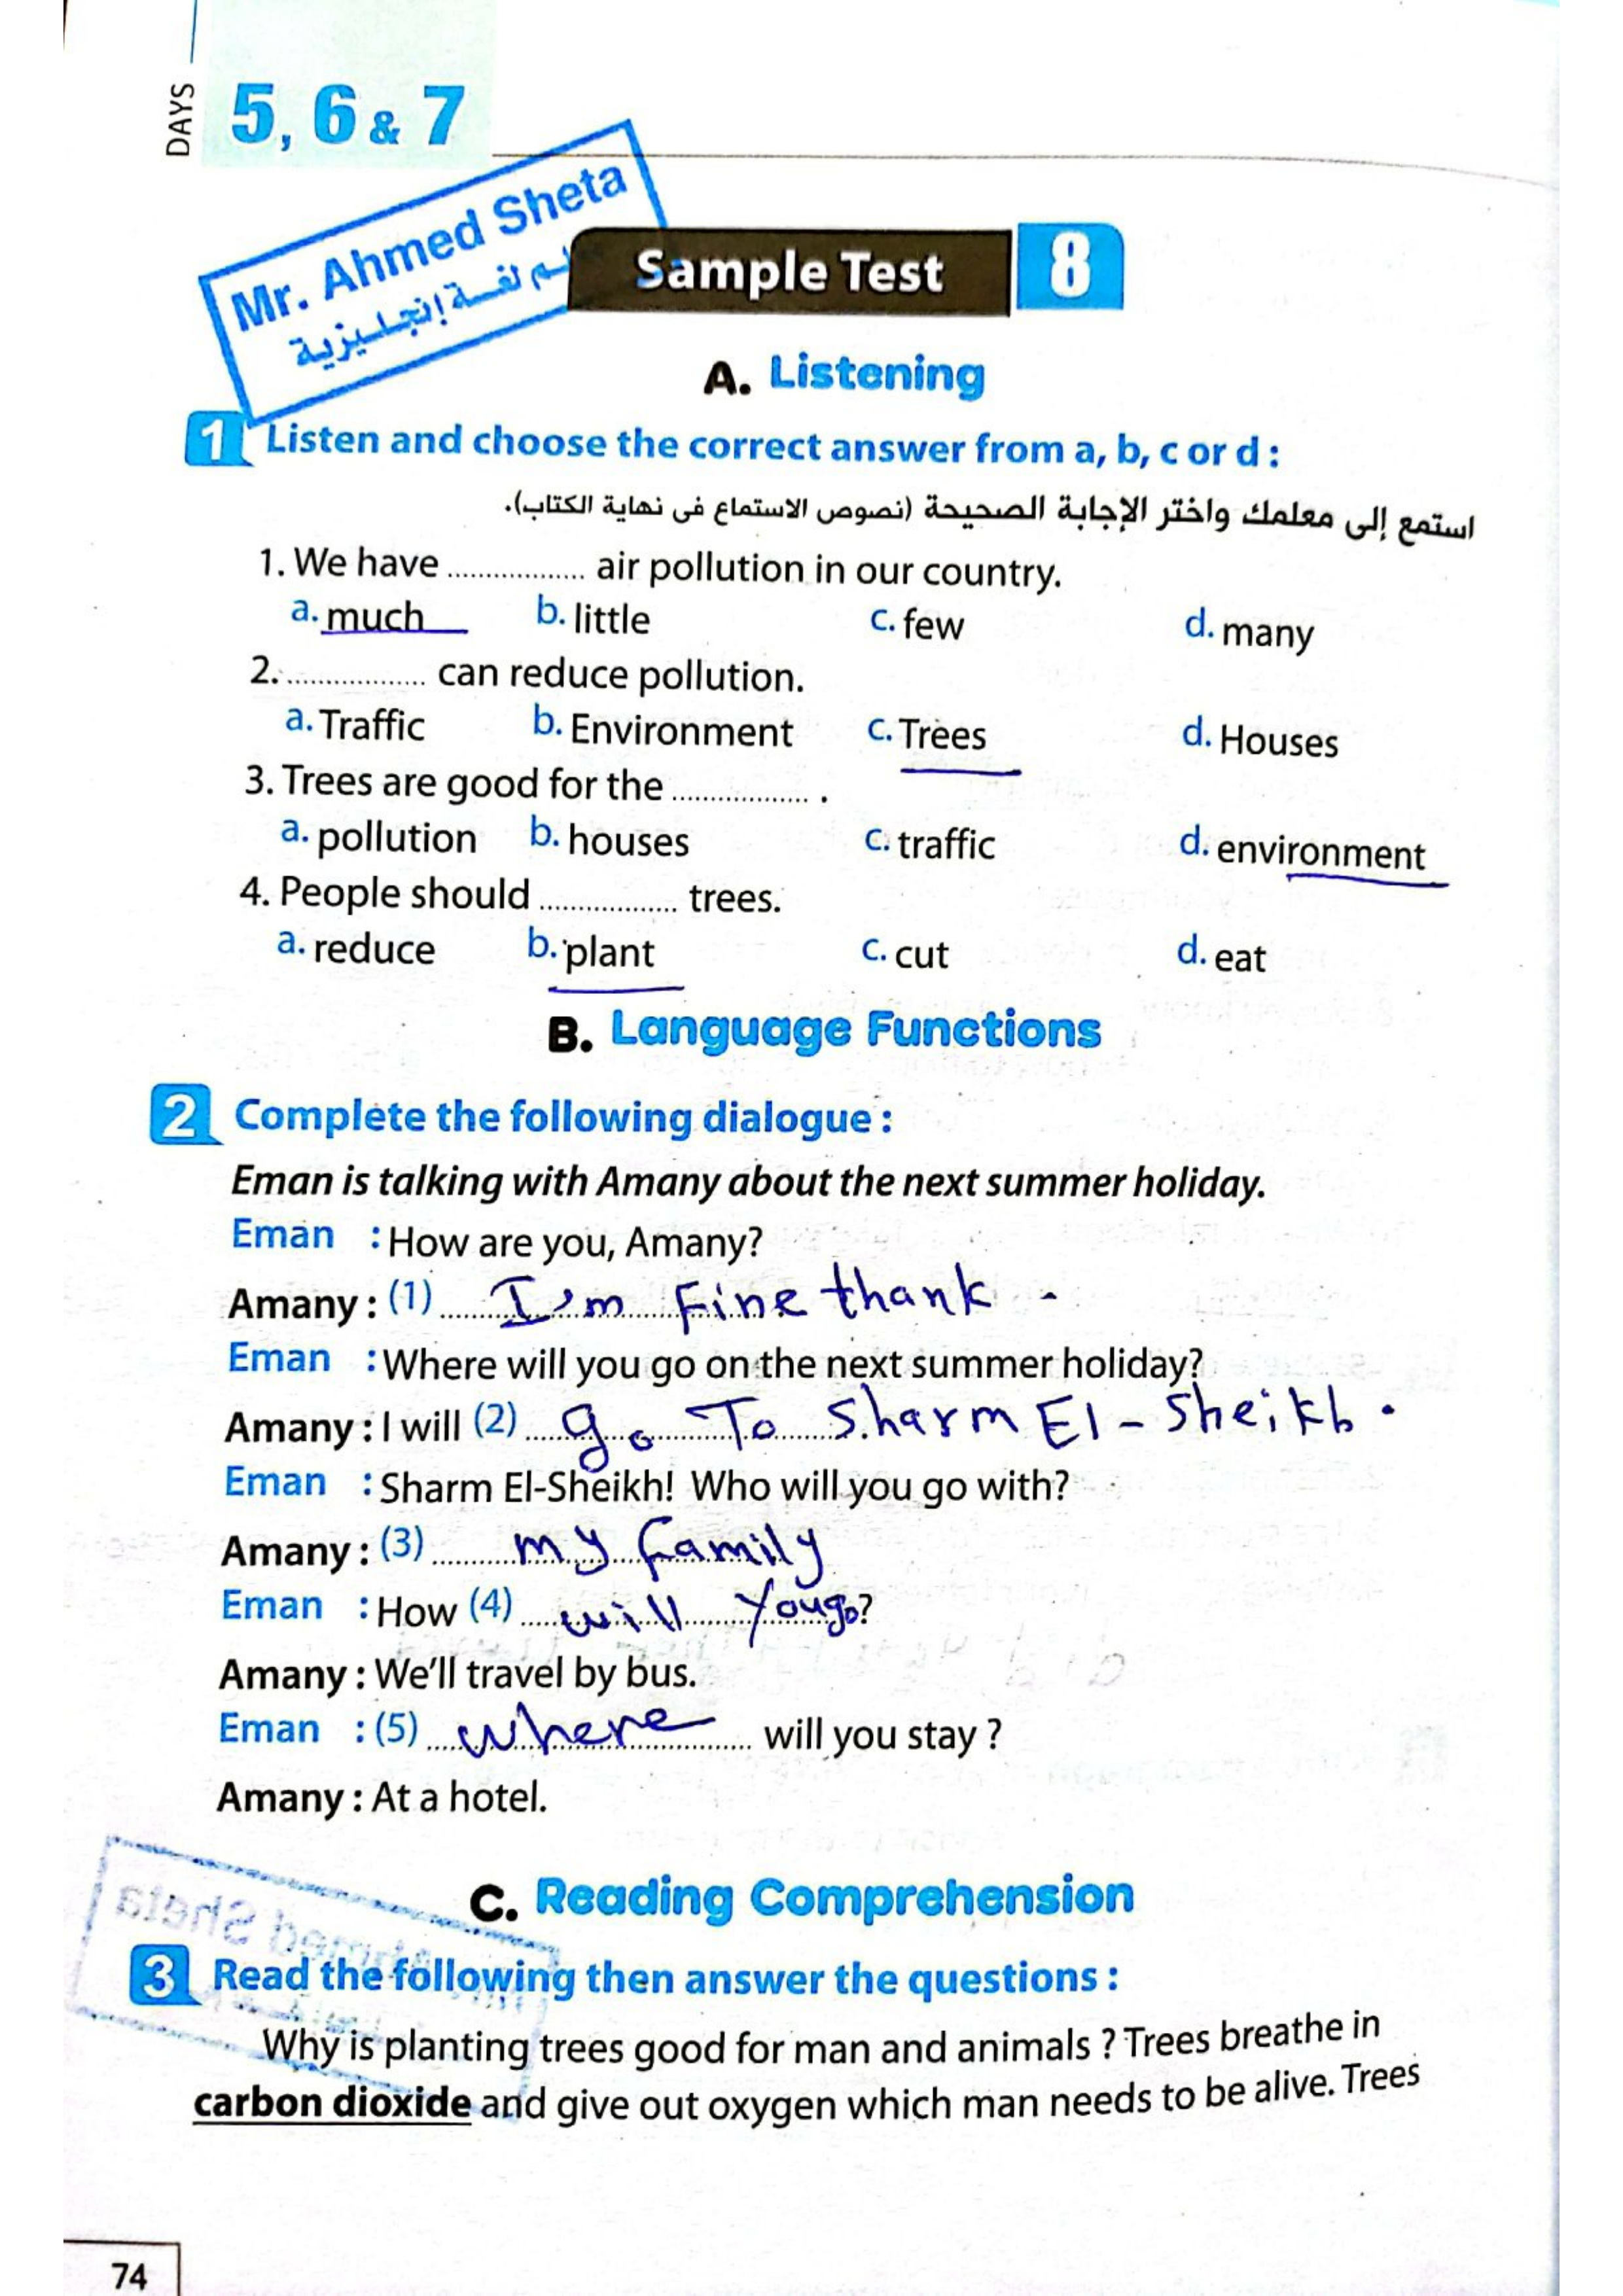 DAYS 5, 6 & 7
Mr. Ahmed Sheta
لغة إنجليزية
Sample Test 8
A. Listening
1 Listen and choose the correct answer from a, b, c or d :
استمع إلى معلمك واختر الإجابة الصحيحة (نصوص الاستماع فى نهاية الكتاب).
1. We have ................. air pollution in our country.
a. much b. little c. few d. many
2. ................. can reduce pollution.
a. Traffic b. Environment c. Trees d. Houses
3. Trees are good for the ................. .
a. pollution b. houses c. traffic d. environment
4. People should ................. trees.
a. reduce b. plant c. cut d. eat
B. Language Functions
2 Complete the following dialogue :
Eman is talking with Amany about the next summer holiday.
Eman : How are you, Amany?
Amany : (1) I'm Fine thank .
Eman : Where will you go on the next summer holiday?
Amany : I will (2) go To Sharm El-Sheikh .
Eman : Sharm El-Sheikh! Who will you go with?
Amany : (3) my family
Eman : How (4) will You go ?
Amany : We'll travel by bus.
Eman : (5) where will you stay ?
Amany : At a hotel.
C. Reading Comprehension
3 Read the following then answer the questions :
Why is planting trees good for man and animals ? Trees breathe in
carbon dioxide and give out oxygen which man needs to be alive. Trees
74